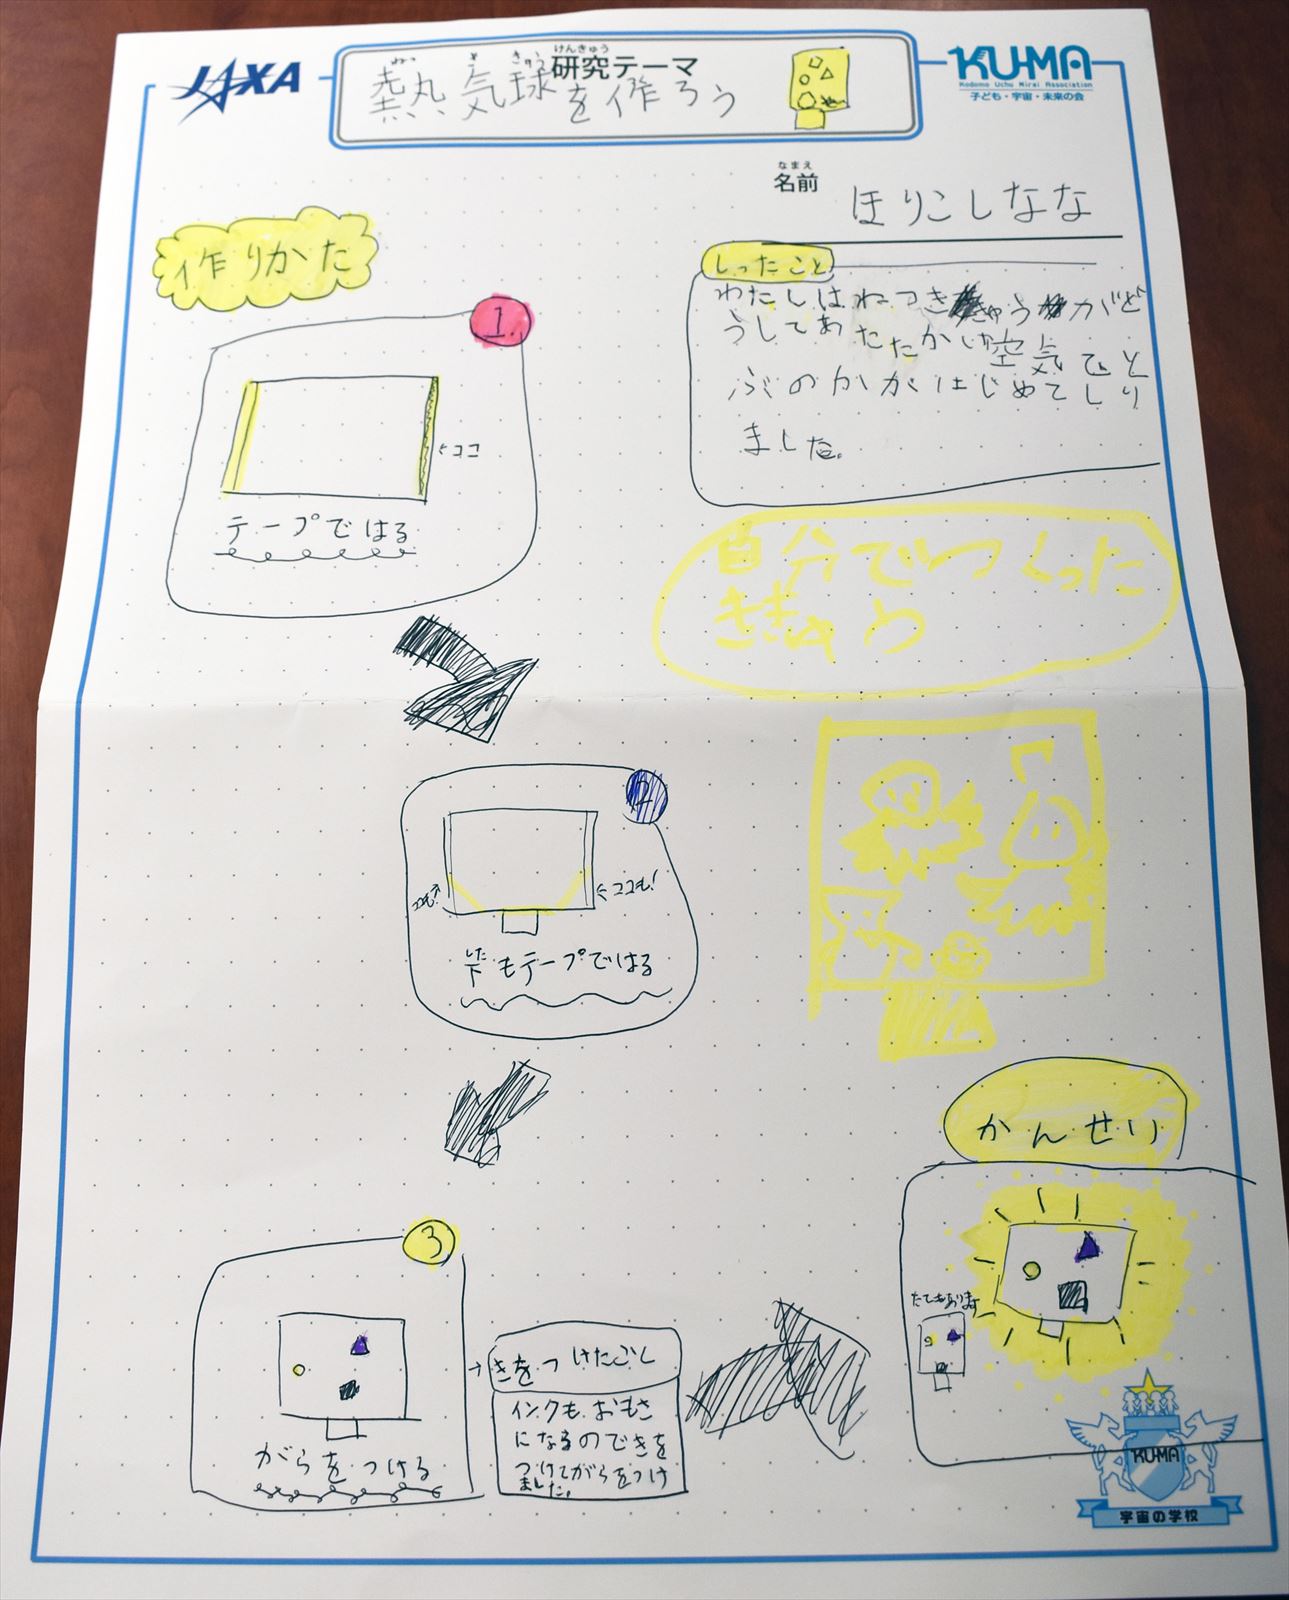 JAXA
けんきゅう
研究テーマ
ねつ き きゅう
熱気球を作ろう
KU-MA
Kodomo Uchu Mirai Association
子ども・宇宙・未来の会
なまえ
名前
ほりこしなな
作りかた
1
←ココ
テープではる
しったこと
わたしはねつききゅうがど
うしてあたたかい空気でと
ぶのかがはじめてしり
ました。
自分でつくった
ききゅう
2
ココも!
←ココも!
した
下もテープではる
3
がらをつける
→
きをつけたこと
インクも、おもさ
になるのできを
つけてがらをつけ
ました。
かんせい
たてもあります
KU-MA
宇宙の学校